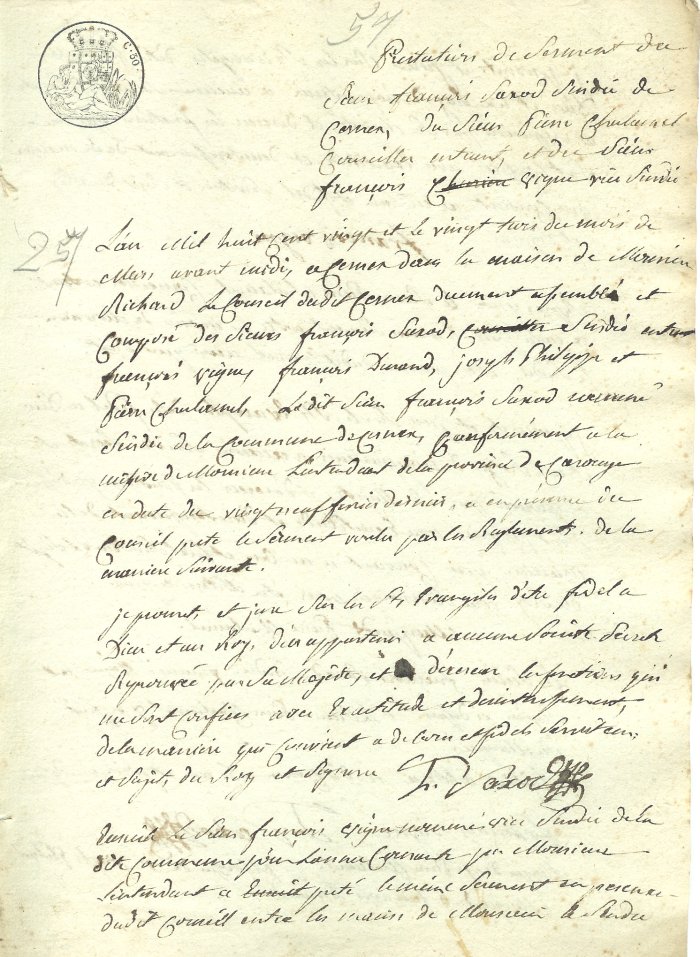 57
C. 50
Prestation de Serment du
Sieur françois Saxod Sindic de
Cernex, du Sieur Pierre Chulamel
Conseiller entrant, et du Sieur
françois vigne vice Sindic
257
L'an Mil huit Cent vingt et le vingt trois du mois de
Mars avant midi, a Cernex dans la maison de Monsieur
Richard Le Conseil dudit Cernex duement assemblé et
Composé des Sieurs françois Saxod, Sindic
françois vigne, françois Durand, joseph Philippe et
Pierre Chulamel, Le dit Sieur françois Saxod nommé
Sindic de la Commune de Cernex, Conformément a la
missive de Monsieur L'intendant de la province de Carouge
en date du vingt neuf fevrier dernier, a en présence du
Conseil preté le Serment voulu par les Reglements. de la
maniere Suivante.
je promet, et jure Sur les Sts Evangiles d'etre fidel a
Dieu et au Roy, de n'appartenir a aucune Société Secrete
Reprouvée par Sa Majesté, et d'exercer les fonctions qui
me Sont Confiées avec Exactitude et desinteressement,
de la maniere qui Convient a de bons et fidels Serviteurs,
et Sujets, du Roy et Signé
fr. Saxod
Ensuite le Sieur françois vigne nommé vice Sindic de la
dite Commune pour L'année Courante par Monsieur
L'intendant a Ensuit preté le même Serment en presence
dudit Conseil entre les mains de Monsieur le Sindic